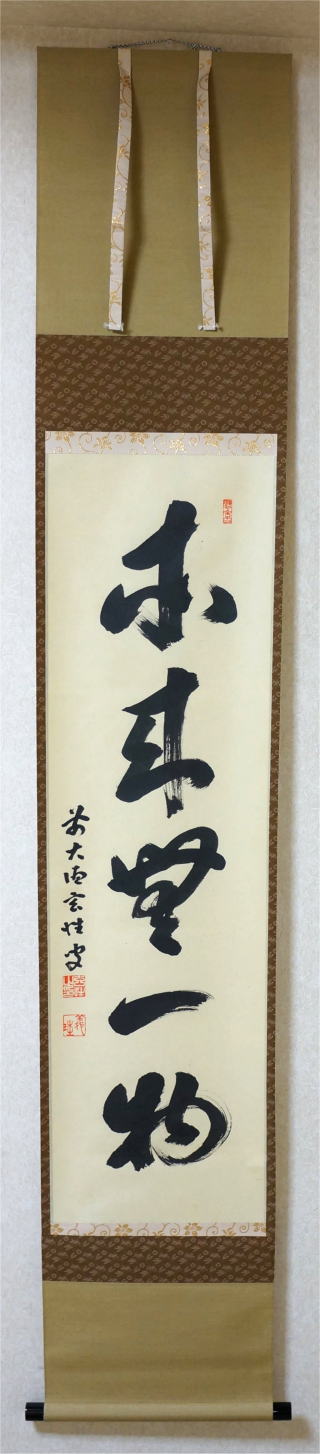 本来無一物
前大徳玄性叟